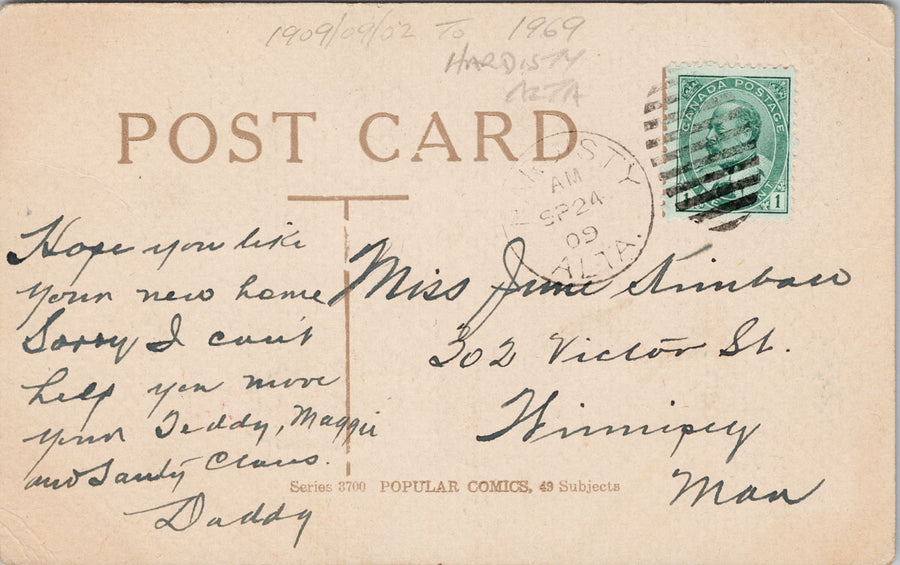 1909/09/02 TO 1969
HARDISTY
ALTA
CANADA POSTAGE
1
POST CARD
HARDISTY
AM
SP 24
09
ALTA.
Hope you like
your new home
Sorry I can't
help you move
your Teddy, Maggie
and Santy Claus.
Daddy
Miss June
302 Victor St.
Winnipeg
Man
Series 3700 POPULAR COMICS, 49 Subjects